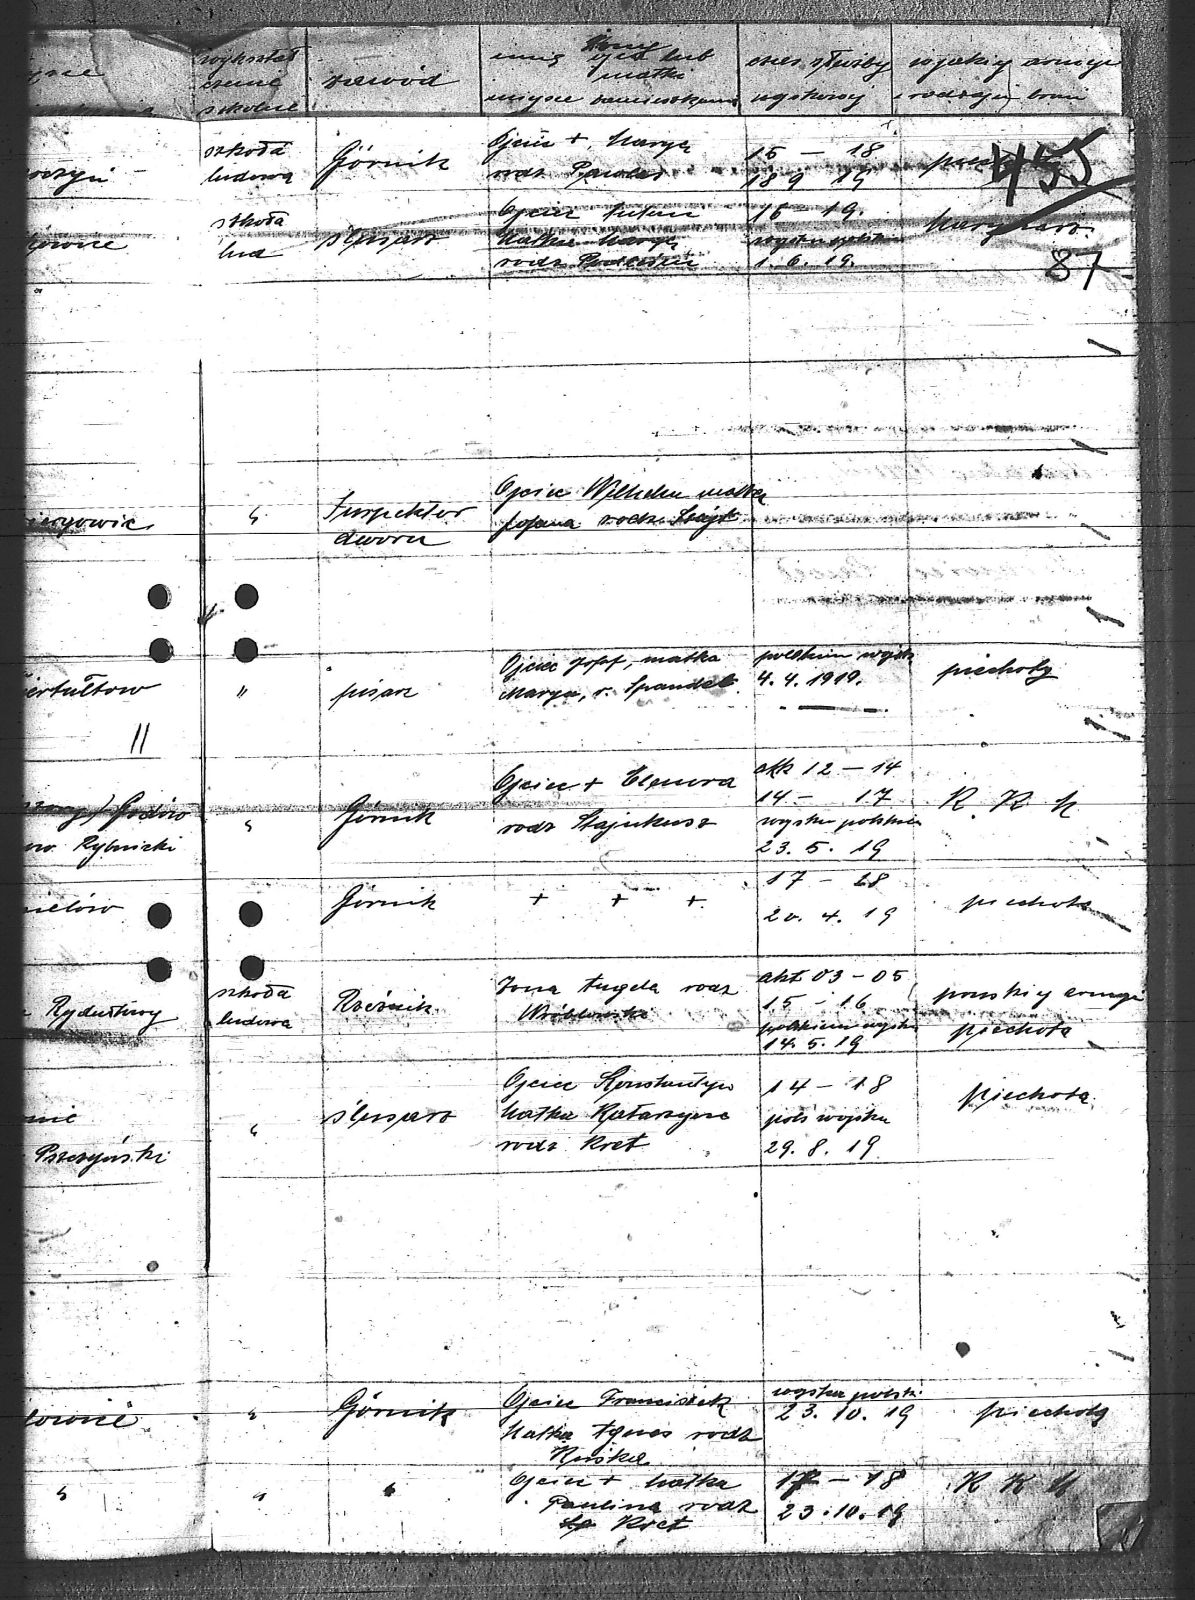 wykształ
cenie
szkolne
zawód
imię żony
ojca lub
matki
miejsce zamieszkania
czas służby
wojskowej
w jakiej armji
i rodzaju broni
szkoła
ludowa
Górnik
Ojciec +, Marya
rodz
15 – 18
18 9 19
455
szkoła
lud
ślusarz
Ojciec Antoni
Matka Marya
rodz
16 – 19.
wojsku polskim
1. 6. 19.
87
"
Inspektor
dworu
Ojciec Wilhelm matka
rodz.
"
pisarz
Ojciec Jozef, matka
Marya, r. Spandel
polskim wojsk
4. 4. 1919.
piechoty
||
Godów
pow. Rybnicki
"
Górnik
Ojciec + Eleonora
rodz
akt 12 – 14
14 – 17
wojsku polskim
23. 5. 19
K. K. U
Górnik
+ + +
17 – 18
20. 4. 19
piechota
Rydułtowy
szkoła
ludowa
Rzeźnik
Żona Angela rodz
Wróblowska
akt 03 – 05
15 – 16
polskiem wojsku
14. 5. 19
pruskiej armji
piechota
Pszczyński
"
ślusarz
Ojciec Konstantyn
Matka Katarzyna
rodz Kret
14 – 18
pols wojsku
29. 8. 19
piechota
"
Górnik
Ojciec Franciszek
Matka Agnes rodz
wojsku polski
23. 10. 19
piechoty
"
"
"
Ojciec + Matka
Paulina rodz
Kret
17 – 18
23. 10. 19
K K U